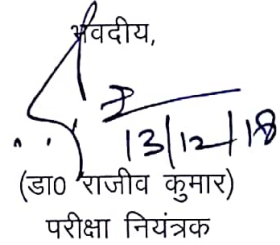 भवदीय,
13/12/18
(डा0 राजीव कुमार)
परीक्षा नियंत्रक